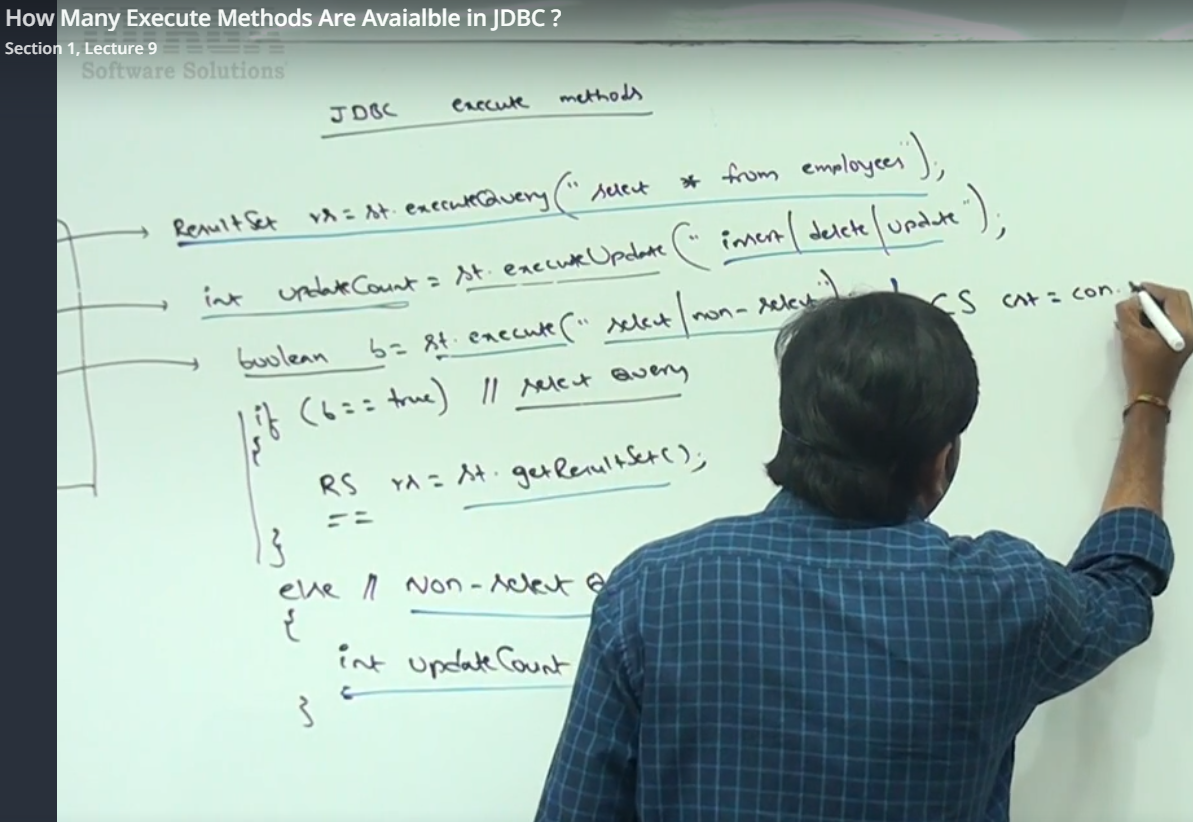 How Many Execute Methods Are Avaialble in JDBC ?
Section 1, Lecture 9
Software Solutions
JDBC execute methods
ResultSet rs = st. executeQuery(" select * from employees");
int updateCount = st. executeUpdate (" insert / delete / update");
boolean b = st. execute(" select / non-select") CS cst = con.
if (b == true) // select Query
{
RS rs = st. getResultSet();
==
}
else // Non-select Q
{
int updateCount
}